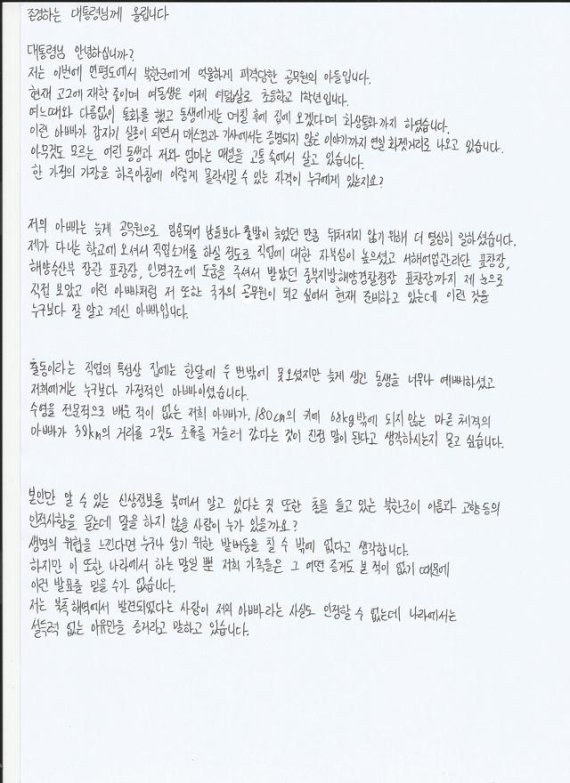 존경하는 대통령님께 올립니다
대통령님 안녕하십니까?
저는 이번에 연평도에서 북한군에게 억울하게 피격당한 공무원의 아들입니다.
현재 고2에 재학 중이며 여동생은 이제 여덟살로 초등학교 1학년입니다.
여느때와 다름없이 통화를 했고 동생에게는 며칠 후에 집에 오겠다며 화상통화까지 하였습니다.
이런 아빠가 갑자기 실종이 되면서 매스컴과 기사에서는 증명되지 않은 이야기까지 연일 화젯거리로 나오고 있습니다.
아무것도 모르는 어린 동생과 저와 엄마는 매일을 고통 속에서 살고 있습니다.
한 가정의 가장을 하루아침에 이렇게 몰락시킬 수 있는 자격이 누구에게 있는지요?
저의 아빠는 늦게 공무원으로 임용되어 남들보다 출발이 늦었던 만큼 뒤쳐지지 않기 위해 더 열심히 일하셨습니다.
제가 다니는 학교에 오셔서 직업소개를 하실 정도로 직업에 대한 자부심이 높으셨고 서해어업관리단 표창장,
해양수산부 장관 표창장, 인명구조에 도움을 주셔서 받았던 중부지방해양경찰청장 표창장까지 제 눈으로
직접 보았고 이런 아빠처럼 저 또한 국가의 공무원이 되고 싶어서 현재 준비하고 있는데 이런 것을
누구보다 잘 알고 계신 아빠입니다.
출동이라는 직업의 특성상 집에는 한달에 두 번밖에 못오셨지만 늦게 생긴 동생을 너무나 예뻐하셨고
저희에게는 누구보다 가정적인 아빠이셨습니다.
수영을 전문적으로 배운 적이 없는 저희 아빠가, 180cm의 키에 68kg밖에 되지 않는 마른 체격의
아빠가 38km의 거리를 그것도 조류를 거슬러 갔다는 것이 진정 말이 된다고 생각하시는지 묻고 싶습니다.
본인만 알 수 있는 신상정보를 북에서 알고 있다는 것 또한 총을 들고 있는 북한군이 이름과 고향 등의
인적사항을 묻는데 말을 하지 않을 사람이 누가 있을까요?
생명의 위협을 느낀다면 누구나 살기 위한 발버둥을 칠 수 밖에 없다고 생각합니다.
하지만 이 또한 나라에서 하는 말일 뿐 저희 가족들은 그 어떤 증거도 본 적이 없기 때문에
이런 발표를 믿을 수가 없습니다.
저는 북측 해역에서 발견되었다는 사람이 저의 아빠라는 사실도 인정할 수 없는데 나라에서는
설득력 없는 이유만을 증거라고 말하고 있습니다.